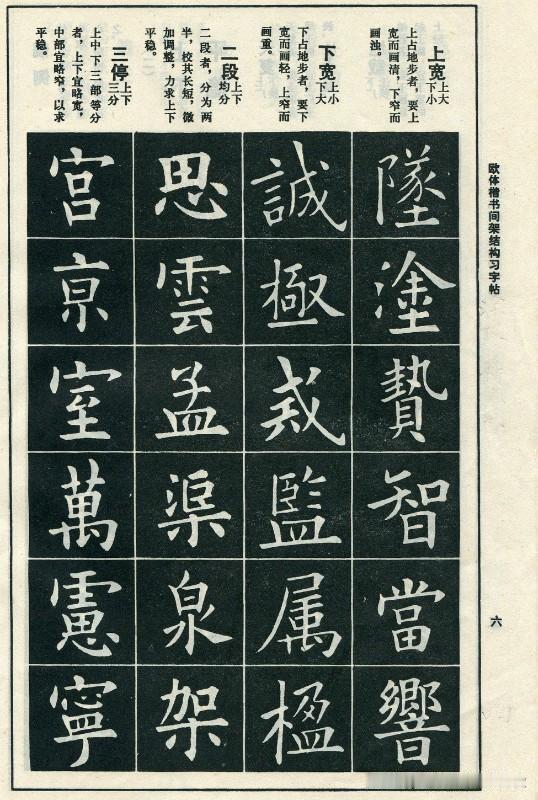 欧体楷书间架结构习字帖
六
上宽 上大下小
上占地步者，要上
宽而画清，下窄而
画浊。
墜塗贄智當響
下宽 上小下大
下占地步者，要下
宽而画轻，上窄而
画重。
誠極監属楹
二段 上下均分
二段者，分为两
半，校其长短，微
加调整，力求上下
平稳。
思雲孟渠泉架
三停 上下三分
上中下三部等分
者，上下宜略宽，
中部宜略窄，以求
平稳。
宫亰室萬憲寧